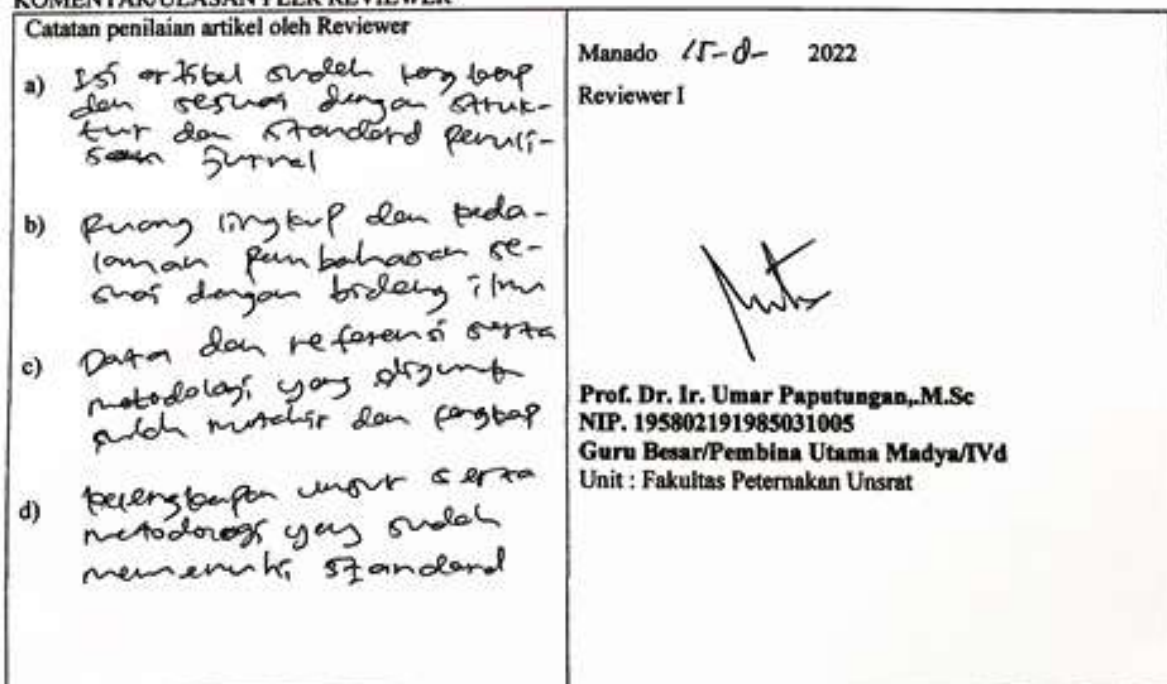 KOMENTAR/ULASAN PEER REVIEWER
Catatan penilaian artikel oleh Reviewer
a) Isi artikel sudah lengkap
dan sesuai dengan struk-
tur dan standard penuli-
san jurnal
b) Ruang lingkup dan keda-
laman pembahasan se-
suai dengan bidang ilmu
c) Data dan referensi serta
metodologi yang
sudah mutakhir dan lengkap
d) kelengkapan unsur serta
metodologi yang sudah
memenuhi standard
Manado 15-8- 2022
Reviewer I
Prof. Dr. Ir. Umar Paputungan,.M.Sc
NIP. 195802191985031005
Guru Besar/Pembina Utama Madya/IVd
Unit : Fakultas Peternakan Unsrat